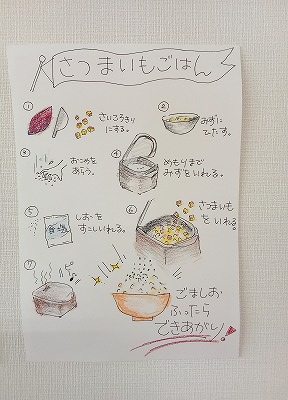 さつまいもごはん
①
さいころぎりにする。
②
みずに
ひたす。
③
おこめを
あらう。
④
めもりまで
みずをいれる。
⑤
食塩
しおを
すこしいれる。
⑥
さつまいも
をいれる。
⑦
ごましお
ふったら
できあがり!